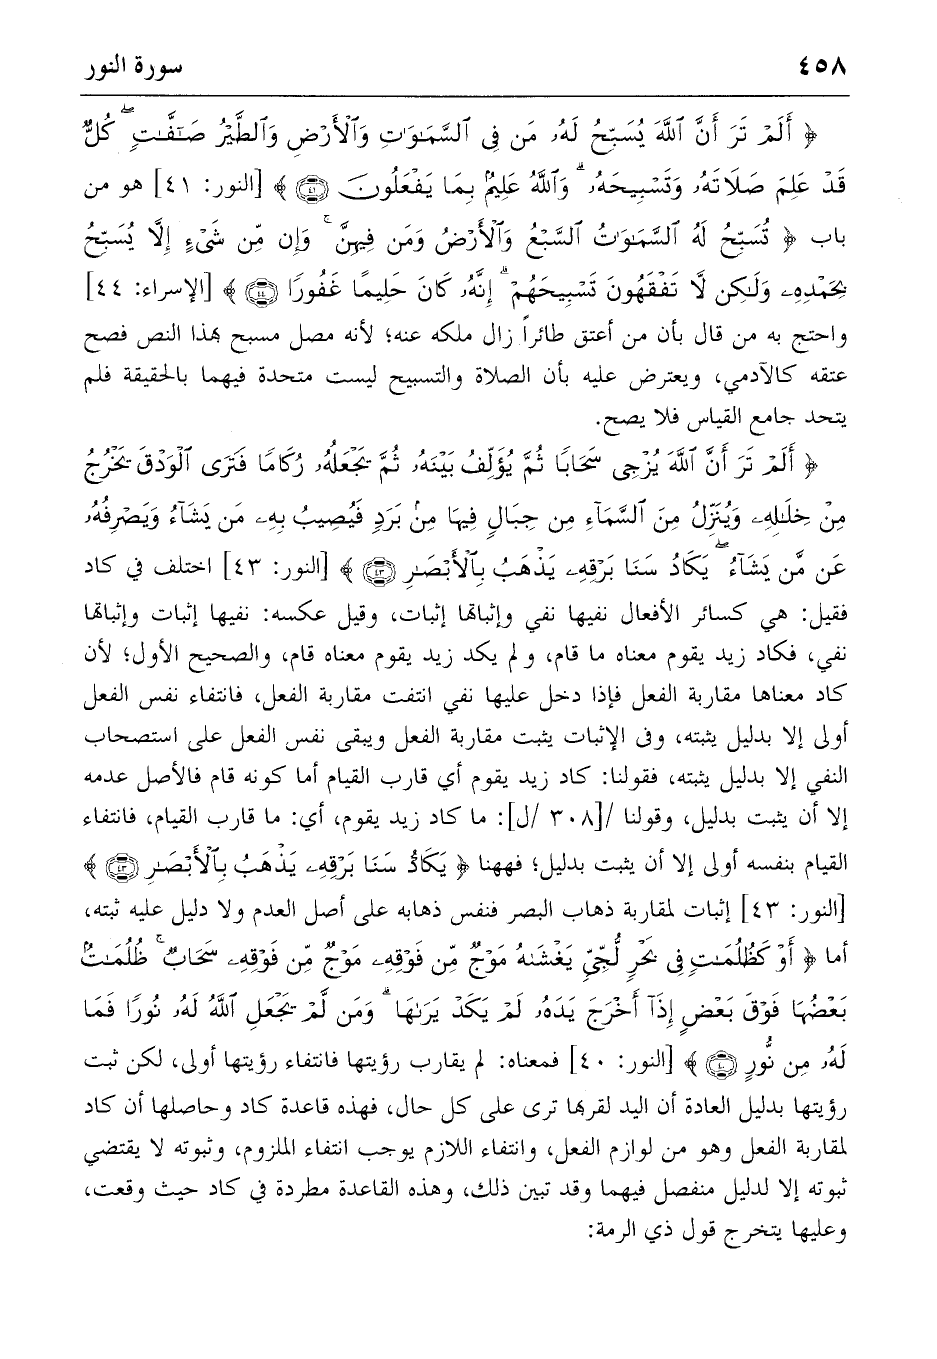 ٤٥٨ سورة النور
﴿ أَلَمْ تَرَ أَنَّ ٱللَّهَ يُسَبِّحُ لَهُۥ مَن فِى ٱلسَّمَٰوَٰتِ وَٱلْأَرْضِ وَٱلطَّيْرُ صَٰٓفَّٰتٍۖ كُلٌّ
قَدْ عَلِمَ صَلَاتَهُۥ وَتَسْبِيحَهُۥۗ وَٱللَّهُ عَلِيمٌۢ بِمَا يَفْعَلُونَ ٤١ ﴾ [النور: ٤١] هو من
باب ﴿ تُسَبِّحُ لَهُ ٱلسَّمَٰوَٰتُ ٱلسَّبْعُ وَٱلْأَرْضُ وَمَن فِيهِنَّۚ وَإِن مِّن شَىْءٍ إِلَّا يُسَبِّحُ
بِحَمْدِهِۦ وَلَٰكِن لَّا تَفْقَهُونَ تَسْبِيحَهُمْۗ إِنَّهُۥ كَانَ حَلِيمًا غَفُورًا ٤٤ ﴾ [الإسراء: ٤٤]
واحتج به من قال بأن من أعتق طائراً زال ملكه عنه؛ لأنه مصل مسبح بهذا النص فصح
عتقه كالآدمي، ويعترض عليه بأن الصلاة والتسبيح ليست متحدة فيهما بالحقيقة فلم
يتحد جامع القياس فلا يصح.
﴿ أَلَمْ تَرَ أَنَّ ٱللَّهَ يُزْجِى سَحَابًا ثُمَّ يُؤَلِّفُ بَيْنَهُۥ ثُمَّ يَجْعَلُهُۥ رُكَامًا فَتَرَى ٱلْوَدْقَ يَخْرُجُ
مِنْ خِلَٰلِهِۦ وَيُنَزِّلُ مِنَ ٱلسَّمَآءِ مِن جِبَالٍ فِيهَا مِنۢ بَرَدٍ فَيُصِيبُ بِهِۦ مَن يَشَآءُ وَيَصْرِفُهُۥ
عَن مَّن يَشَآءُۖ يَكَادُ سَنَا بَرْقِهِۦ يَذْهَبُ بِٱلْأَبْصَٰرِ ٤٣ ﴾ [النور: ٤٣] اختلف في كاد
فقيل: هي كسائر الأفعال نفيها نفي وإثباتها إثبات، وقيل عكسه: نفيها إثبات وإثباتها
نفي، فكاد زيد يقوم معناه ما قام، و لم يكد زيد يقوم معناه قام، والصحيح الأول؛ لأن
كاد معناها مقاربة الفعل فإذا دخل عليها نفي انتفت مقاربة الفعل، فانتفاء نفس الفعل
أولى إلا بدليل يثبته، وفى الإثبات يثبت مقاربة الفعل ويبقى نفس الفعل على استصحاب
النفي إلا بدليل يثبته، فقولنا: كاد زيد يقوم أي قارب القيام أما كونه قام فالأصل عدمه
إلا أن يثبت بدليل، وقولنا /[٣٠٨ /ل]: ما كاد زيد يقوم، أي: ما قارب القيام، فانتفاء
القيام بنفسه أولى إلا أن يثبت بدليل؛ فههنا ﴿ يَكَادُ سَنَا بَرْقِهِۦ يَذْهَبُ بِٱلْأَبْصَٰرِ ٤٣ ﴾
[النور: ٤٣] إثبات لمقاربة ذهاب البصر فنفس ذهابه على أصل العدم ولا دليل عليه ثبته،
أما ﴿ أَوْ كَظُلُمَٰتٍ فِى بَحْرٍ لُّجِّىٍّ يَغْشَىٰهُ مَوْجٌ مِّن فَوْقِهِۦ مَوْجٌ مِّن فَوْقِهِۦ سَحَابٌۚ ظُلُمَٰتٌۢ
بَعْضُهَا فَوْقَ بَعْضٍ إِذَآ أَخْرَجَ يَدَهُۥ لَمْ يَكَدْ يَرَىٰهَاۗ وَمَن لَّمْ يَجْعَلِ ٱللَّهُ لَهُۥ نُورًا فَمَا
لَهُۥ مِن نُّورٍ ٤٠ ﴾ [النور: ٤٠] فمعناه: لم يقارب رؤيتها فانتفاء رؤيتها أولى، لكن ثبت
رؤيتها بدليل العادة أن اليد لقربها ترى على كل حال، فهذه قاعدة كاد وحاصلها أن كاد
لمقاربة الفعل وهو من لوازم الفعل، وانتفاء اللازم يوجب انتفاء الملزوم، وثبوته لا يقتضي
ثبوته إلا لدليل منفصل فيهما وقد تبين ذلك، وهذه القاعدة مطردة في كاد حيث وقعت،
وعليها يتخرج قول ذي الرمة: